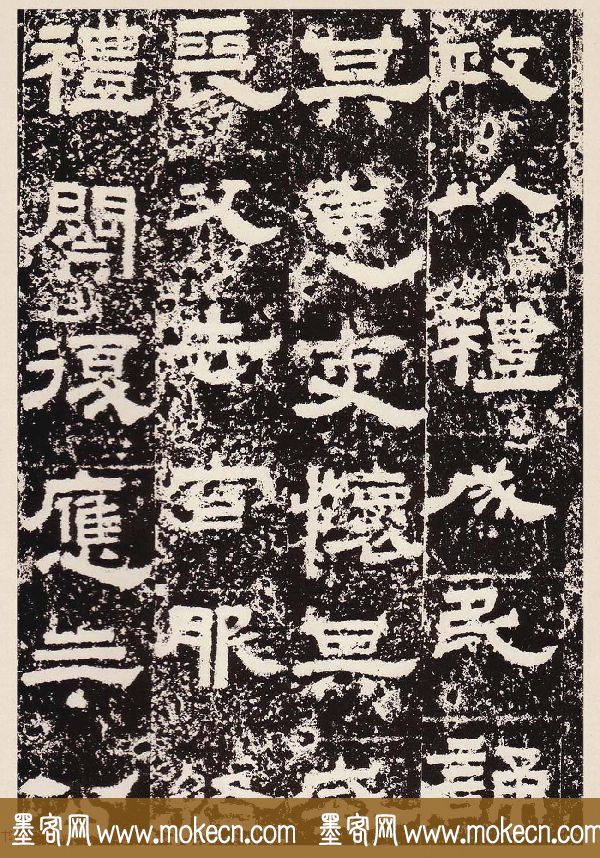 政以禮成民誦
其惠吏懷其
喪父去官服終
禮闋復應三
墨客网 www.mokecn.com 墨客网 www.mokecn.com